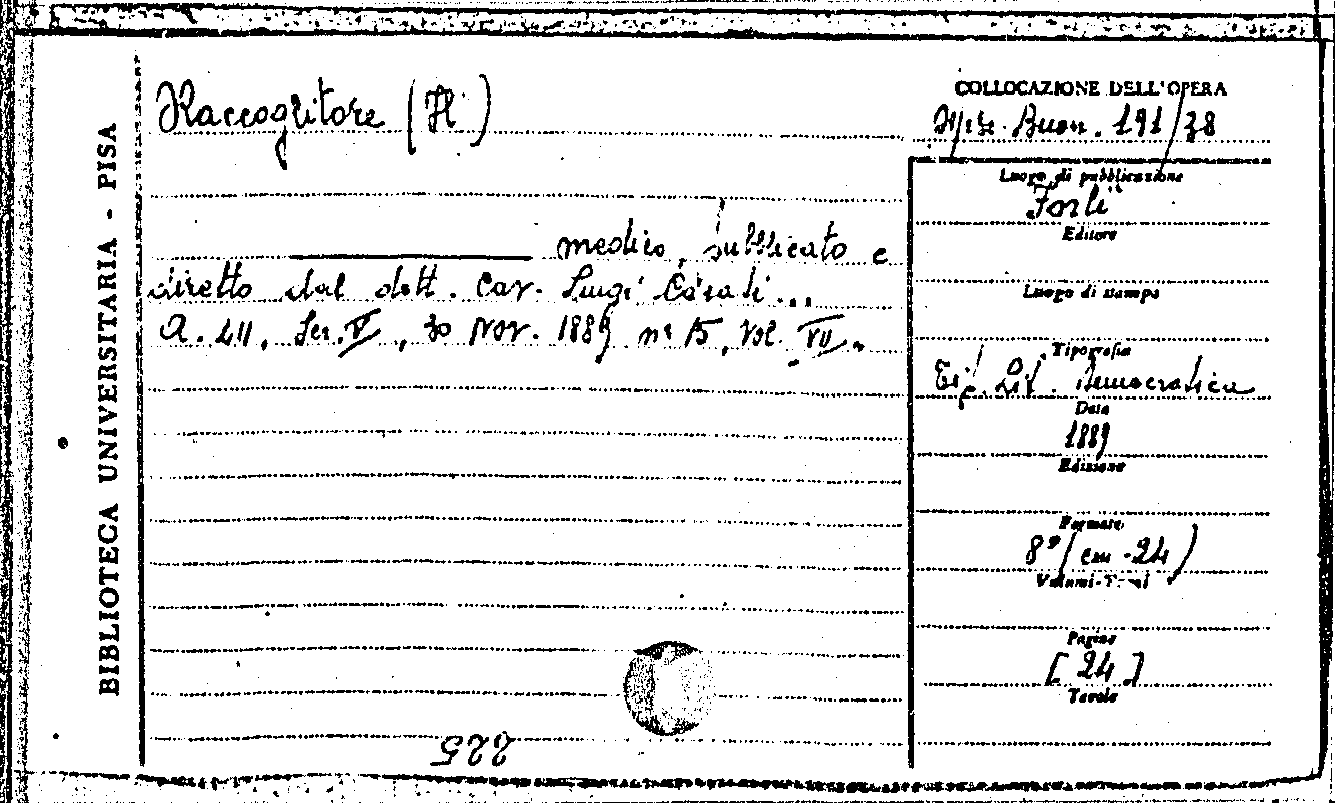 BIBLIOTECA UNIVERSITARIA - PISA
Raccoglitore (Il)
medico, pubblicato e
diretto dal dott. Cav. Luigi Casati...
A. LII, Ser. V, 30 Nov. 1889 nº 15, Vol. VII.
225
COLLOCAZIONE DELL'OPERA
Buon. 191/38
Luogo di pubblicazione
Forlì
Editore
Luogo di stampa
Tipografia
Tip. Lit. Democratica
Data
1889
Edizione
Formato
8º (cm. 24)
Volumi-Tomi
Pagine
[24]
Tavole